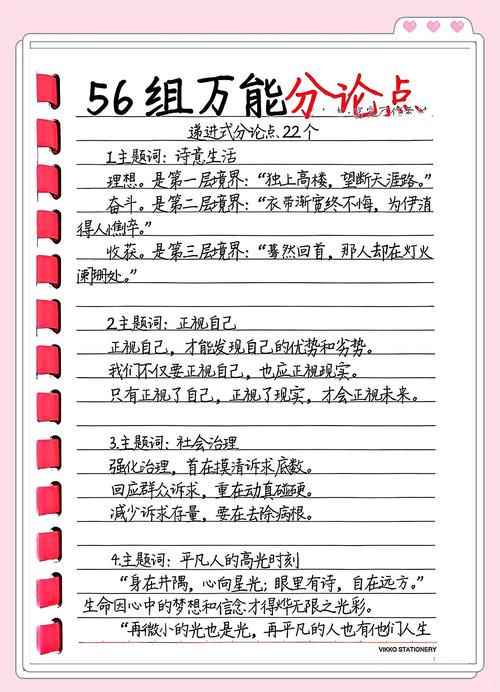 56组万能分论点
递进式分论点、22个
1.主题词：诗意生活
理想。是第一层境界：“独上高楼，望断天涯路。”
奋斗。是第二层境界：“衣带渐宽终不悔，为伊消
得人憔悴。”
收获。是第三层境界：“蓦然回首，那人却在灯火
阑珊处。”
2.主题词：正视自己
正视自己，才能发现自己的优势和劣势。
我们不仅要正视自己，也应正视现实。
只有正视了自己，正视了现实，才会正视未来。
3.主题词：社会治理
强化治理，首在摸清诉求底数。
回应群众诉求，重在动真碰硬。
减少诉求存量，要在去除病根。
4.主题词：平凡人的高光时刻
“身在井隅，心向星光；眼里有诗，自在远方。”
生命因心中的梦想和信念才得烨无限之光彩。
“再微小的光也是光，再平凡的人也有他们人生
VIKKO STATIONERY